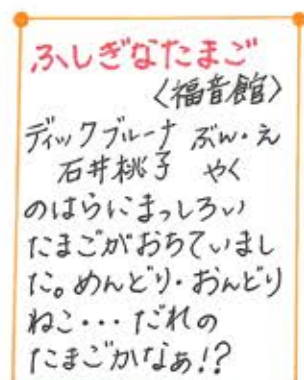 ふしぎなたまご
〈福音館〉
ディックブルーナ ぶん・え
石井桃子 やく
のはらにまっしろい
たまごがおちていまし
た。めんどり・おんどり
ねこ・・・だれの
たまごかなぁ!?